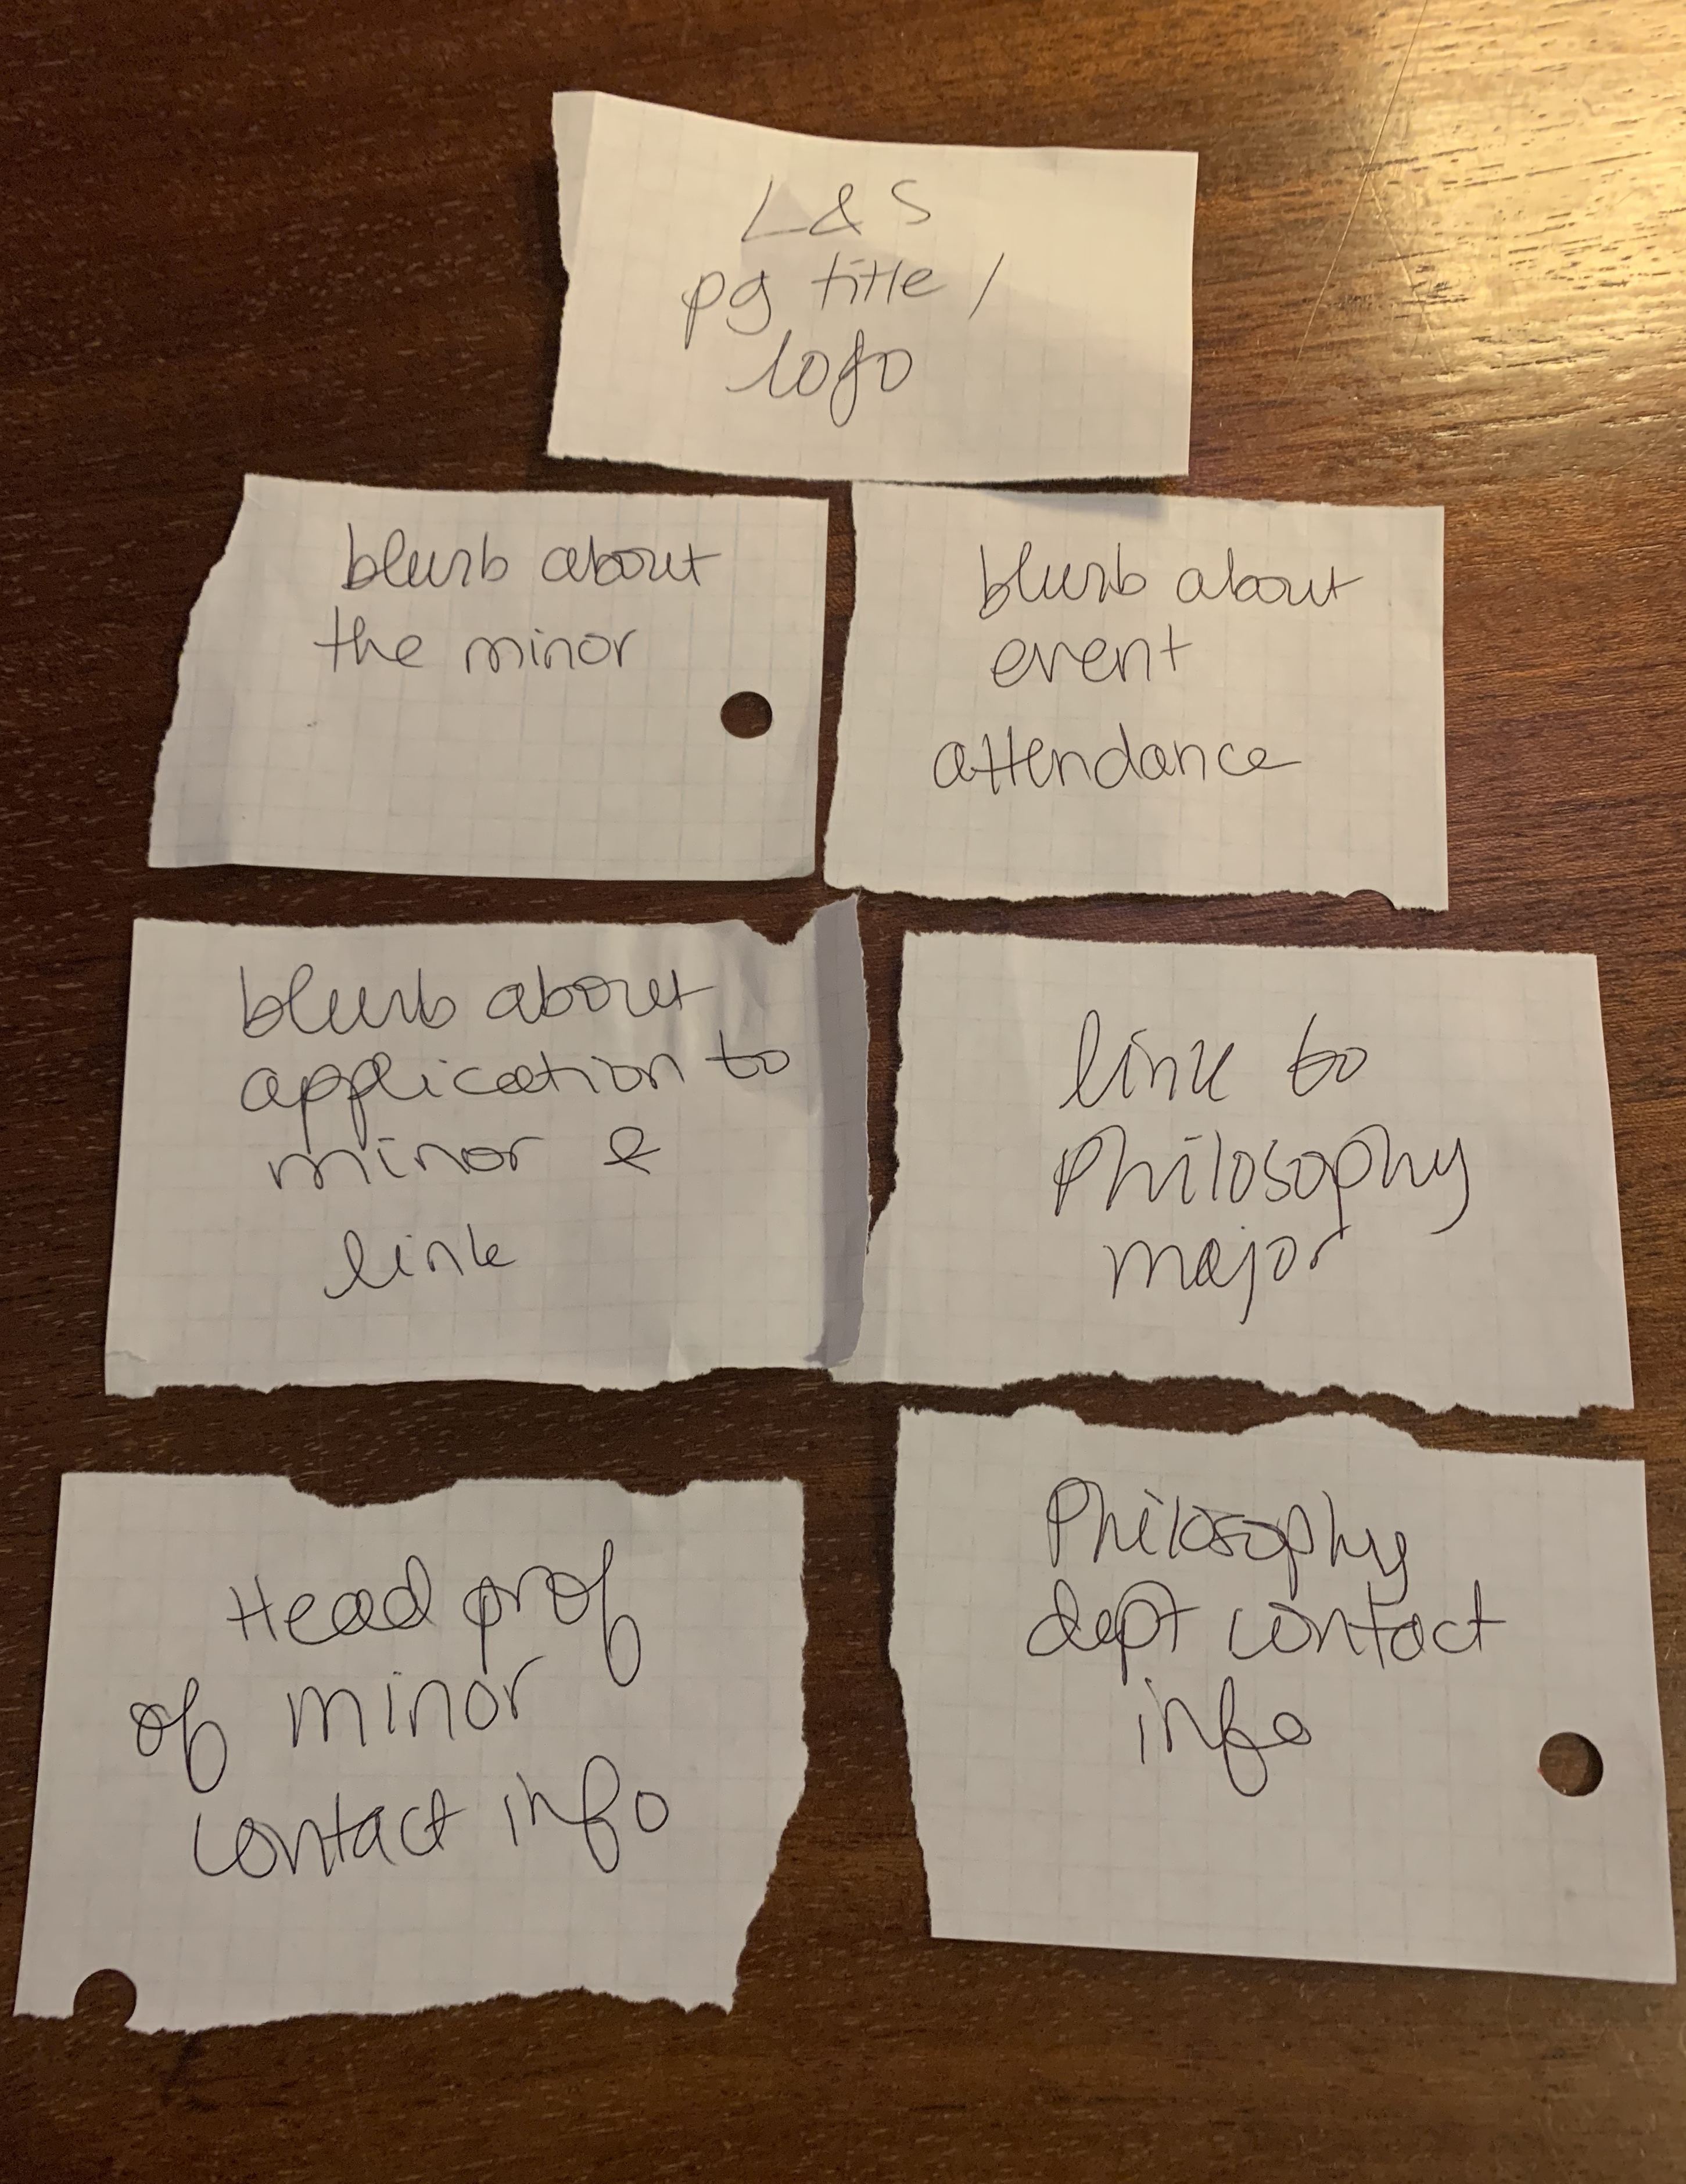 L & S
pg title /
logo
blurb about
the minor
blurb about
event
attendance
blurb about
application to
minor &
link
link to
Philosophy
major
Head prof
of minor
contact info
Philosophy
dept contact
info